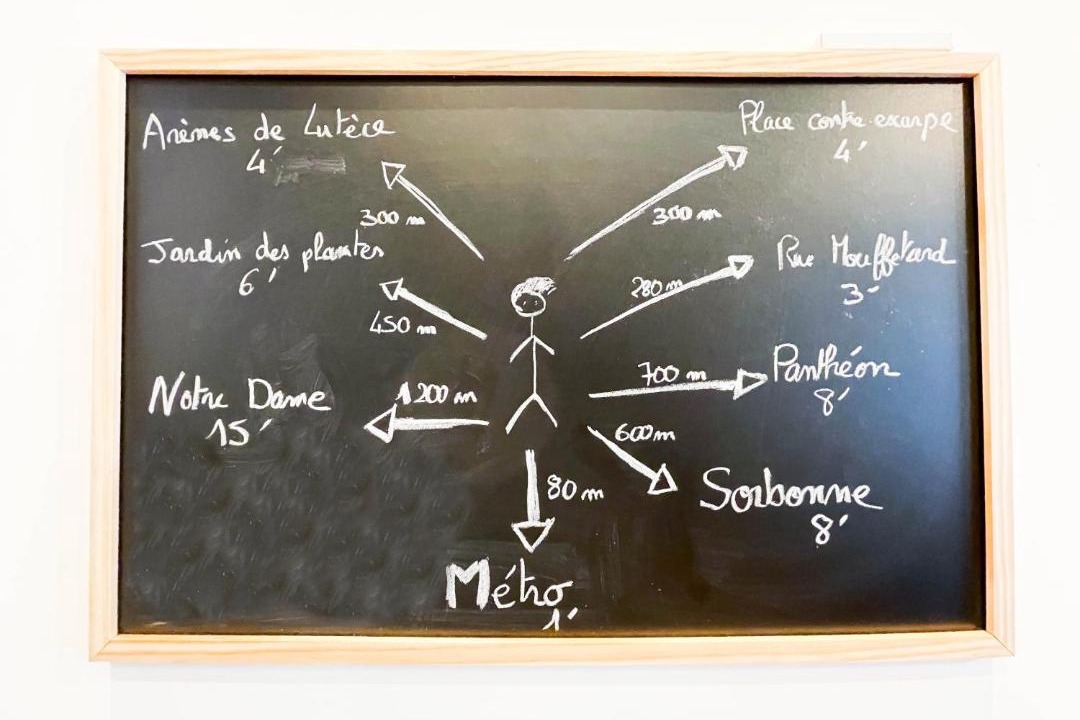 Arènes de Lutèce
4'
300 m
Jardin des plantes
6'
450 m
Notre Dame
15'
1200 m
Place contre-escarpe
4'
300 m
Rue Mouffetard
3'
280 m
Panthéon
8'
700 m
600 m
Sorbonne
8'
80 m
Métro
1'